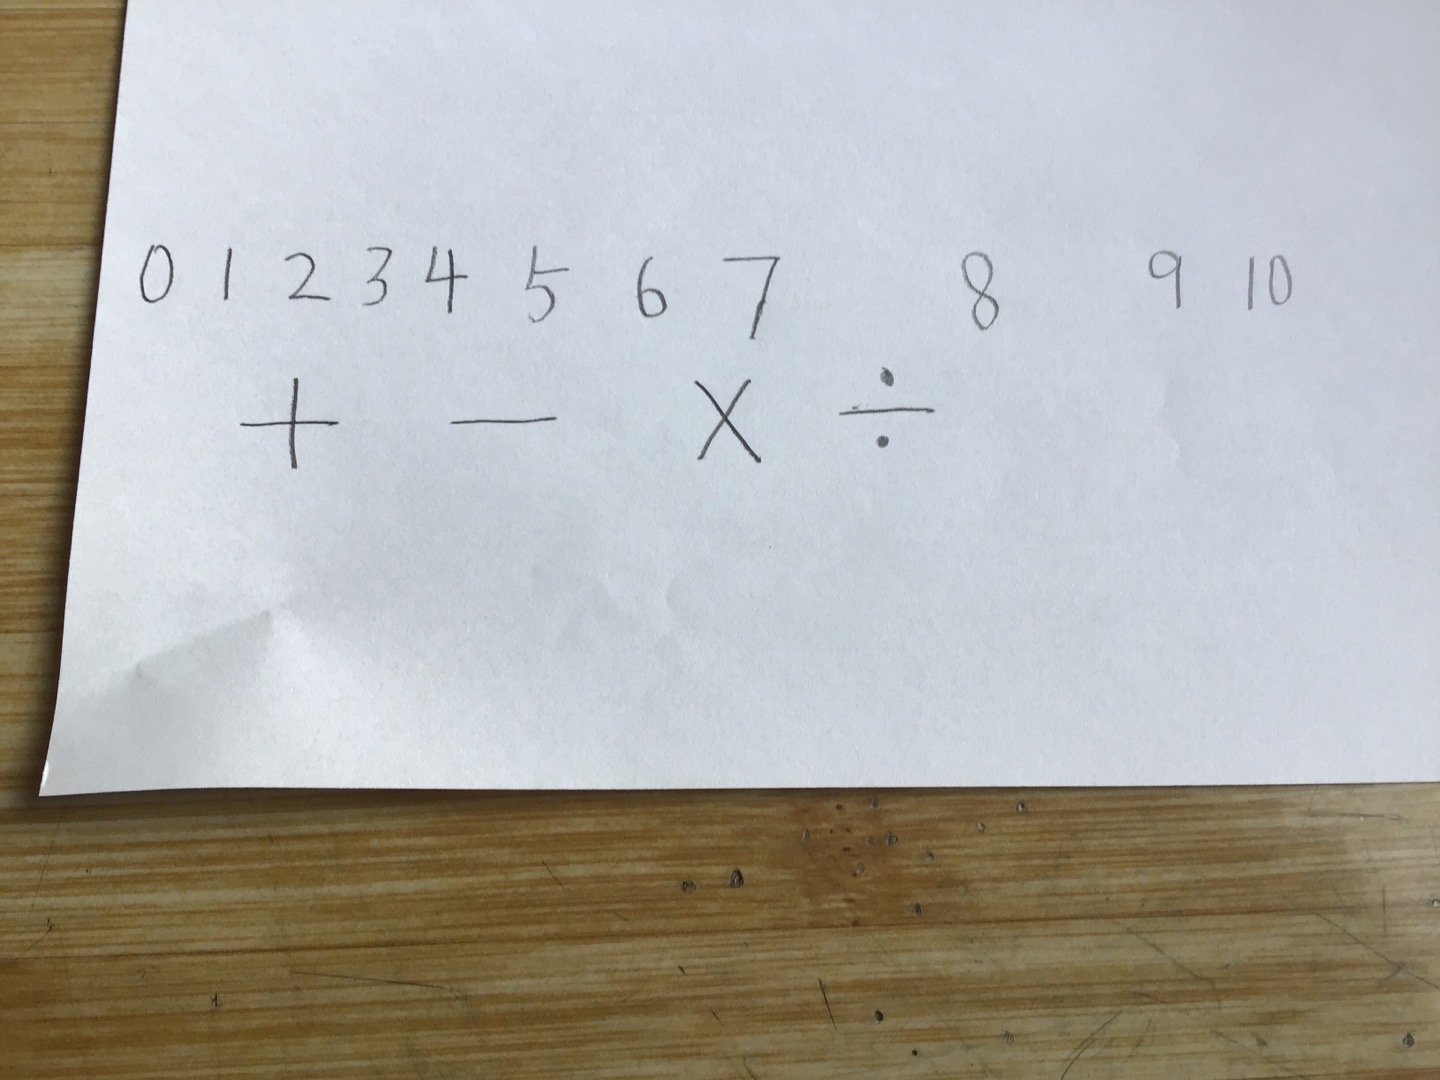 0 1 2 3 4 5 6 7 8 9 10
+ − × ÷